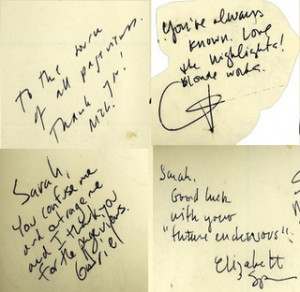 To the source
of all pageviews.
Thank you!
You've always
known. Love
the highlights!
blonde works.
Sarah,
You confuse me
and enrage me
and I thank you
for the pageviews.
Gabriel
Sarah,
Good luck
with your
"future endeavors".
Elizabeth